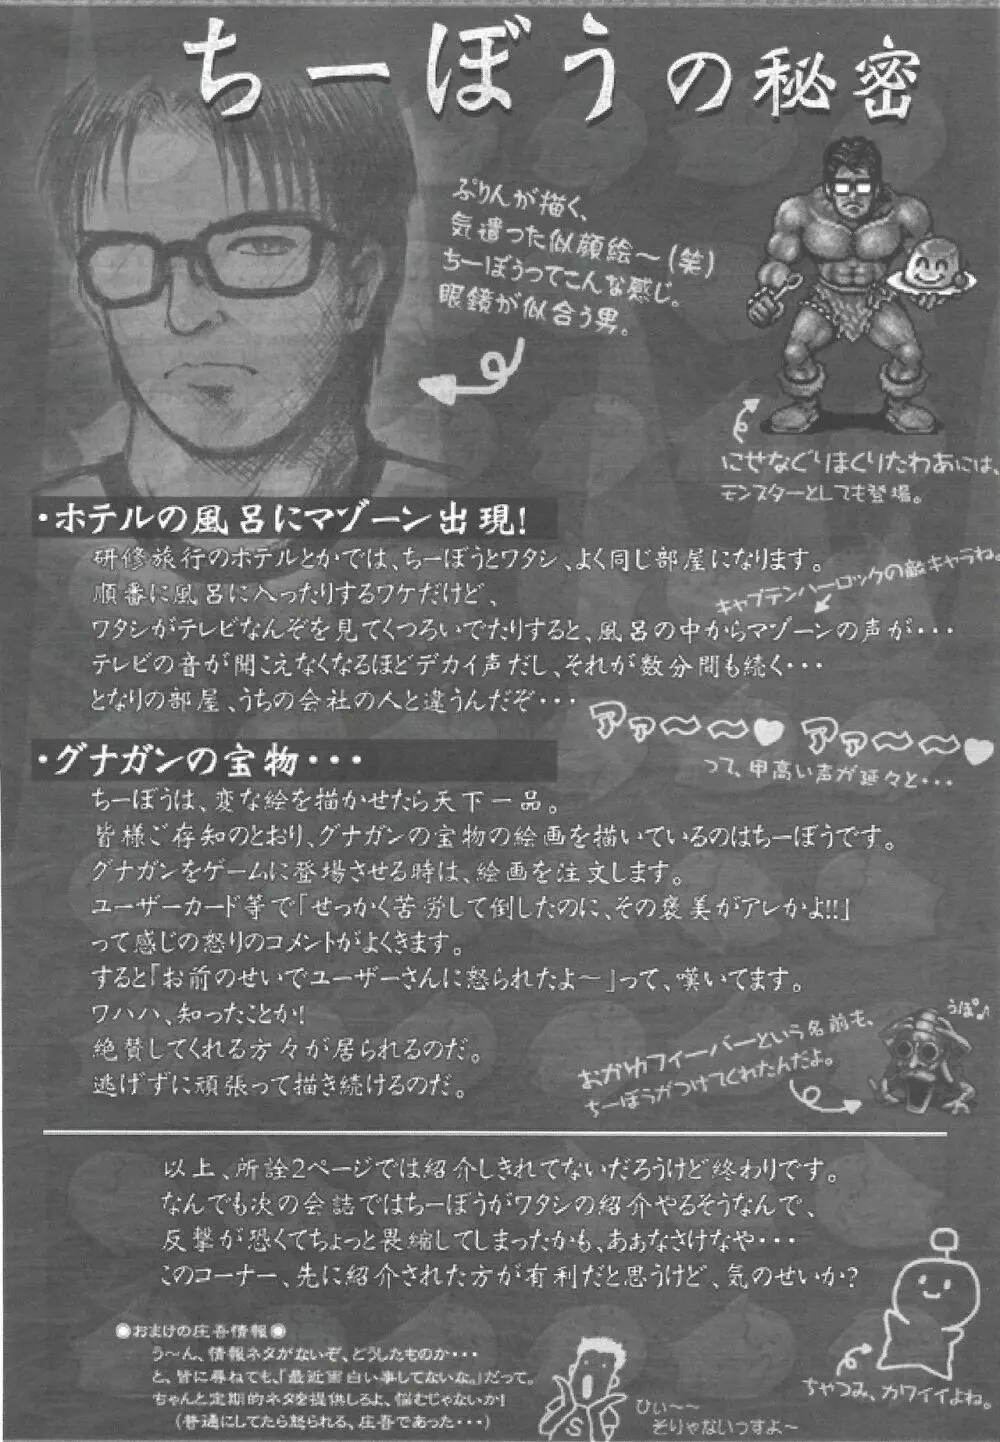 ちーぼうの秘密
ぷりんが描く、
気遣った似顔絵～(笑)
ちーぼうってこんな感じ。
眼鏡が似合う男。
にせなぐりまくりたわあには、
モンスターとしても登場。
・ホテルの風呂にマゾーン出現!
研修旅行のホテルとかでは、ちーぼうとワタシ、よく同じ部屋になります。
順番に風呂に入ったりするワケだけど、
キャプテンハーロックの敵キャラね。
ワタシがテレビなんぞを見てくつろいでたりすると、風呂の中からマゾーンの声が・・・
テレビの音が聞こえなくなるほどデカイ声だし、それが数分間も続く・・・
となりの部屋、うちの会社の人と違うんだぞ・・・
アァ～～♥ アァ～～♥
って、甲高い声が延々と・・・
・グナガンの宝物・・・
ちーぼうは、変な絵を描かせたら天下一品。
皆様ご存知のとおり、グナガンの宝物の絵画を描いているのはちーぼうです。
グナガンをゲームに登場させる時は、絵画を注文します。
ユーザーカード等で「せっかく苦労して倒したのに、その褒美がアレかよ!!」
って感じの怒りのコメントがよくきます。
すると「お前のせいでユーザーさんに怒られたよ～」って、嘆いてます。
ワハハ、知ったことか!
絶賛してくれる方々が居られるのだ。
逃げずに頑張って描き続けるのだ。
うぽ♪
おかゆフィーバーという名前も、
ちーぼうがつけてくれたんだよ。
以上、所詮2ページでは紹介しきれてないだろうけど終わりです。
なんでも次の会誌ではちーぼうがワタシの紹介やるそうなんで、
反撃が恐くてちょっと畏縮してしまったかも、あぁなさけなや・・・
このコーナー、先に紹介された方が有利だと思うけど、気のせいか?
◉おまけの庄吾情報◉
う～ん、情報ネタがないぞ、どうしたものか・・・
と、皆に尋ねても、「最近面白い事してないな。」だって。
ちゃんと定期的ネタを提供しろよ、悩むじゃないか!
(普通にしてたら怒られる、庄吾であった・・・)
S
ひぃ～～
そりゃないっすよ～
ちゃつみ、カワイイよね。